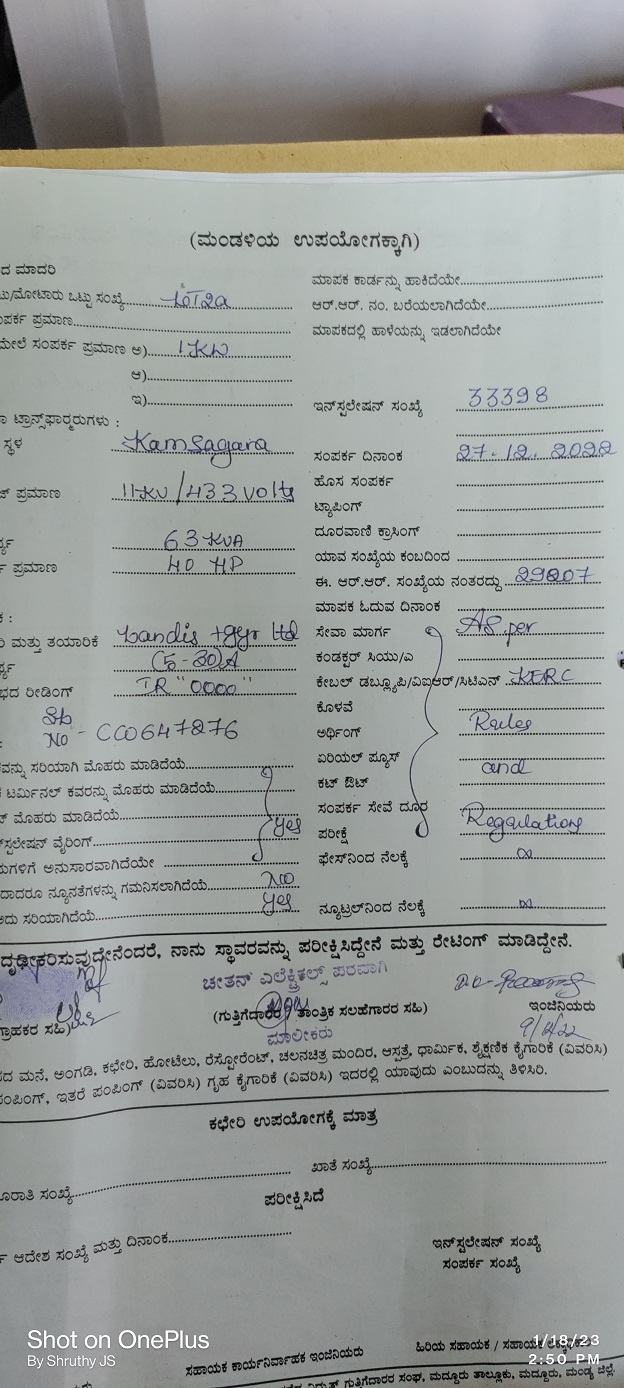 (ಮಂಡಳಿಯ ಉಪಯೋಗಕ್ಕಾಗಿ)
ದ ಮಾದರಿ
ು/ಮೋಟಾರು ಒಟ್ಟು ಸಂಖ್ಯೆ
ಪರ್ಕ ಪ್ರಮಾಣ
ಮೇಲೆ ಸಂಪರ್ಕ ಪ್ರಮಾಣ ಅ) 1KW
ಆ)
ಇ)
ಾ ಟ್ರಾನ್ಸ್‌ಫಾರ‍್ಮರುಗಳು :
ಸ್ಥಳ Kamsagara
ಜ್ ಪ್ರಮಾಣ 11KV/433 volts
ರ್ಥ್ಯ 63 KVA
ರ್ಕ ಪ್ರಮಾಣ 40 HP
ಕ :
ರಿ ಮತ್ತು ತಯಾರಿಕೆ Landis + gyr ltd
ರ್ಥ್ಯ (5-30)A
ಭದ ರೀಡಿಂಗ್ IR "0000"
No - CC0647876
ವನ್ನು ಸರಿಯಾಗಿ ಮೊಹರು ಮಾಡಿದೆಯೆ
ಟರ್ಮಿನಲ್ ಕವರನ್ನು ಮೊಹರು ಮಾಡಿದೆಯೆ
ಟ್ ಮೊಹರು ಮಾಡಿದೆಯೆ
ನ್‌ಸ್ಟಲೇಷನ್ ವೈರಿಂಗ್ yes
ುಗಳಿಗೆ ಅನುಸಾರವಾಗಿದೆಯೇ
ದಾದರೂ ನ್ಯೂನತೆಗಳನ್ನು ಗಮನಿಸಲಾಗಿದೆಯೆ No
ಅದು ಸರಿಯಾಗಿದೆಯೆ yes
ಮಾಪಕ ಕಾರ್ಡನ್ನು ಹಾಕಿದೆಯೇ
ಆರ್.ಆರ್. ನಂ. ಬರೆಯಲಾಗಿದೆಯೇ
ಮಾಪಕದಲ್ಲಿ ಹಾಳೆಯನ್ನು ಇಡಲಾಗಿದೆಯೇ
ಇನ್‌ಸ್ಟಲೇಷನ್ ಸಂಖ್ಯೆ 33398
ಸಂಪರ್ಕ ದಿನಾಂಕ 27.12.2022
ಹೊಸ ಸಂಪರ್ಕ
ಟ್ಯಾಪಿಂಗ್
ದೂರವಾಣಿ ಕ್ರಾಸಿಂಗ್
ಯಾವ ಸಂಖ್ಯೆಯ ಕಂಬದಿಂದ
ಈ. ಆರ್.ಆರ್. ಸಂಖ್ಯೆಯ ನಂತರದ್ದು 29207
ಮಾಪಕ ಓದುವ ದಿನಾಂಕ
ಸೇವಾ ಮಾರ್ಗ As per
ಕಂಡಕ್ಟರ್ ಸಿಯು/ಎ
ಕೇಬಲ್ ಡಬ್ಲ್ಯೂಪಿ/ವಿಐಆರ್/ಸಿಟಿಎಸ್ KERC
ಕೊಳವೆ
ಅರ್ಥಿಂಗ್ Rules
ಏರಿಯಲ್ ಫ್ಯೂಸ್
ಕಟ್ ಔಟ್ and
ಸಂಪರ್ಕ ಸೇವೆ ದೂರ
ಪರೀಕ್ಷೆ Regulations
ಫೇಸ್‌ನಿಂದ ನೆಲಕ್ಕೆ ∞
ನ್ಯೂಟ್ರಲ್‌ನಿಂದ ನೆಲಕ್ಕೆ ∞
ದೃಢೀಕರಿಸುವುದೇನೆಂದರೆ, ನಾನು ಸ್ಥಾವರವನ್ನು ಪರೀಕ್ಷಿಸಿದ್ದೇನೆ ಮತ್ತು ರೇಟಿಂಗ್ ಮಾಡಿದ್ದೇನೆ.
ಚೇತನ್ ಎಲೆಕ್ಟ್ರಿಕಲ್ಸ್ ಪರವಾಗಿ
ಗ್ರಾಹಕರ ಸಹಿ) (ಗುತ್ತಿಗೆದಾರರ/ತಾಂತ್ರಿಕ ಸಲಹೆಗಾರರ ಸಹಿ) ಇಂಜಿನಿಯರು
ಮಾಲೀಕರು
ಪದ ಮನೆ, ಅಂಗಡಿ, ಕಛೇರಿ, ಹೋಟೆಲು, ರೆಸ್ಟೋರೆಂಟ್, ಚಲನಚಿತ್ರ ಮಂದಿರ, ಆಸ್ಪತ್ರೆ, ಧಾರ್ಮಿಕ, ಶೈಕ್ಷಣಿಕ ಕೈಗಾರಿಕೆ (ವಿವರಿಸಿ)
ಪಂಪಿಂಗ್, ಇತರೆ ಪಂಪಿಂಗ್ (ವಿವರಿಸಿ) ಗೃಹ ಕೈಗಾರಿಕೆ (ವಿವರಿಸಿ) ಇದರಲ್ಲಿ ಯಾವುದು ಎಂಬುದನ್ನು ತಿಳಿಸಿರಿ.
ಕಛೇರಿ ಉಪಯೋಗಕ್ಕೆ ಮಾತ್ರ
ೂರಾತಿ ಸಂಖ್ಯೆ ಖಾತೆ ಸಂಖ್ಯೆ
ಪರೀಕ್ಷಿಸಿದೆ
ಆದೇಶ ಸಂಖ್ಯೆ ಮತ್ತು ದಿನಾಂಕ
ಇನ್‌ಸ್ಟಲೇಷನ್ ಸಂಖ್ಯೆ
ಸಂಪರ್ಕ ಸಂಖ್ಯೆ
Shot on OnePlus
By Shruthy JS
1/18/23
2:50 PM
ಸಹಾಯಕ ಕಾರ್ಯನಿರ್ವಾಹಕ ಇಂಜಿನಿಯರು ಹಿರಿಯ ಸಹಾಯಕ / ಸಹಾಯಕ
ಗುತ್ತಿಗೆದಾರರ ಸಂಘ, ಮದ್ದೂರು ತಾಲ್ಲೂಕು, ಮದ್ದೂರು, ಮಂಡ್ಯ ಜಿಲ್ಲೆ.